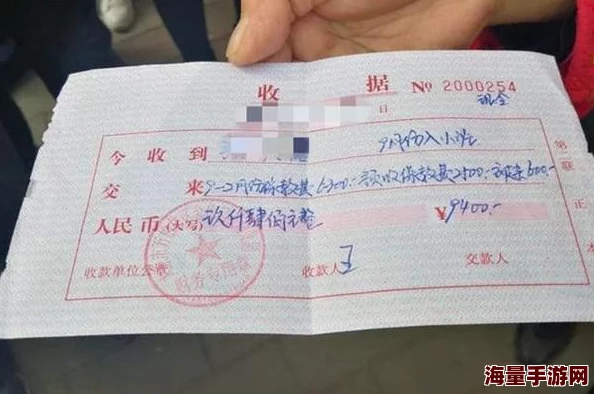 收 据 № 2000254
日 现金
今 收 到 9月份入小班
交 来 9-2月份保教费6300.- 预收保教费2500.- 600.-
人民币(大写) 玖仟肆佰元整 ¥9400.-
收款单位公章 收款人 王 交款人
财务专用章
第 联 正 本
海量手游网